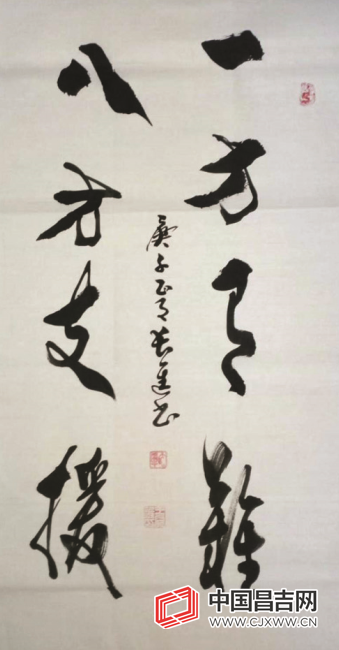 一方有難
八方支援
庚子正月進书
中国昌吉网
WWW.CJXWW.CN